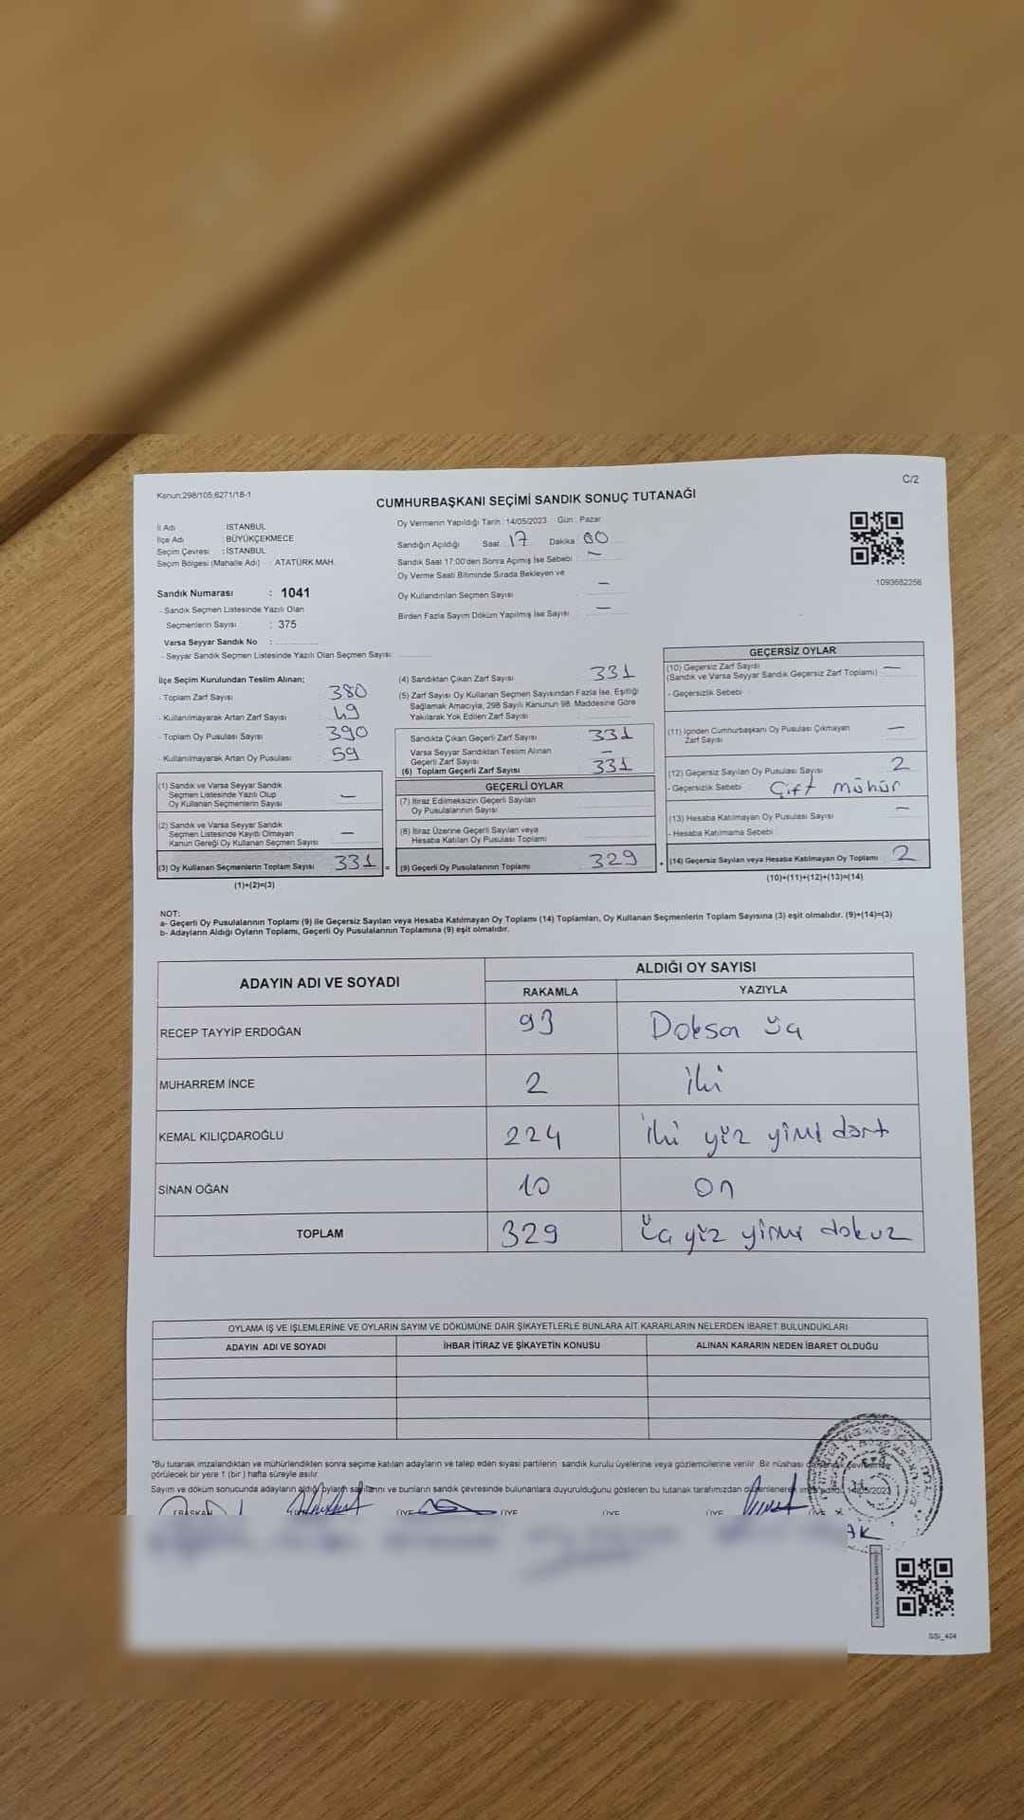 Kanun:298/105,6271/18-1
C/2
CUMHURBAŞKANI SEÇİMİ SANDIK SONUÇ TUTANAĞI
İl Adı : İSTANBUL
İlçe Adı : BÜYÜKÇEKMECE
Seçim Çevresi : İSTANBUL
Seçim Bölgesi (Mahalle Adı) : ATATÜRK MAH.
Oy Vermenin Yapıldığı Tarih : 14/05/2023 Gün : Pazar
Sandığın Açıldığı Saat : 17 Dakika : 00
Sandık Saat 17:00'den Sonra Açılmış İse Sebebi : —
Oy Verme Saati Bitiminde Sırada Bekleyen ve
Oy Kullandırılan Seçmen Sayısı : —
Birden Fazla Sayım Döküm Yapılmış İse Sayısı : —
1093682256
Sandık Numarası : 1041
- Sandık Seçmen Listesinde Yazılı Olan
Seçmenlerin Sayısı : 375
Varsa Seyyar Sandık No :
- Seyyar Sandık Seçmen Listesinde Yazılı Olan Seçmen Sayısı:
İlçe Seçim Kurulundan Teslim Alınan;
- Toplam Zarf Sayısı 380
- Kullanılmayarak Artan Zarf Sayısı 49
- Toplam Oy Pusulası Sayısı 390
- Kullanılmayarak Artan Oy Pusulası 59
(1) Sandık ve Varsa Seyyar Sandık
Seçmen Listesinde Yazılı Olup
Oy Kullanan Seçmenlerin Sayısı —
(2) Sandık ve Varsa Seyyar Sandık
Seçmen Listesinde Kayıtlı Olmayan
Kanun Gereği Oy Kullanan Seçmen Sayısı —
(3) Oy Kullanan Seçmenlerin Toplam Sayısı 331 =
(1)+(2)=(3)
(4) Sandıktan Çıkan Zarf Sayısı 331
(5) Zarf Sayısı Oy Kullanan Seçmen Sayısından Fazla İse, Eşitliği
Sağlamak Amacıyla, 298 Sayılı Kanunun 98. Maddesine Göre
Yakılarak Yok Edilen Zarf Sayısı
Sandıkta Çıkan Geçerli Zarf Sayısı 331
Varsa Seyyar Sandıktan Teslim Alınan
Geçerli Zarf Sayısı —
(6) Toplam Geçerli Zarf Sayısı 331
GEÇERLİ OYLAR
(7) İtiraz Edilmeksizin Geçerli Sayılan
Oy Pusulalarının Sayısı
(8) İtiraz Üzerine Geçerli Sayılan veya
Hesaba Katılan Oy Pusulası Toplamı
(9) Geçerli Oy Pusulalarının Toplamı 329 +
GEÇERSİZ OYLAR
(10) Geçersiz Zarf Sayısı —
(Sandık ve Varsa Seyyar Sandık Geçersiz Zarf Toplamı)
- Geçersizlik Sebebi
(11) İçinden Cumhurbaşkanı Oy Pusulası Çıkmayan
Zarf Sayısı —
(12) Geçersiz Sayılan Oy Pusulası Sayısı 2
- Geçersizlik Sebebi Çift mühür
(13) Hesaba Katılmayan Oy Pusulası Sayısı —
- Hesaba Katılmama Sebebi
(14) Geçersiz Sayılan veya Hesaba Katılmayan Oy Toplamı 2
(10)+(11)+(12)+(13)=(14)
NOT:
a- Geçerli Oy Pusulalarının Toplamı (9) ile Geçersiz Sayılan veya Hesaba Katılmayan Oy Toplamı (14) Toplamları, Oy Kullanan Seçmenlerin Toplam Sayısına (3) eşit olmalıdır. (9)+(14)=(3)
b- Adayların Aldığı Oyların Toplamı, Geçerli Oy Pusulalarının Toplamına (9) eşit olmalıdır.
ADAYIN ADI VE SOYADI
ALDIĞI OY SAYISI
RAKAMLA YAZIYLA
RECEP TAYYİP ERDOĞAN 93 Doksan üç
MUHARREM İNCE 2 iki
KEMAL KILIÇDAROĞLU 224 iki yüz yirmi dört
SİNAN OĞAN 10 on
TOPLAM 329 üç yüz yirmi dokuz
OYLAMA İŞ VE İŞLEMLERİNE VE OYLARIN SAYIM VE DÖKÜMÜNE DAİR ŞİKAYETLERLE BUNLARA AİT KARARLARIN NELERDEN İBARET BULUNDUKLARI
ADAYIN ADI VE SOYADI İHBAR İTİRAZ VE ŞİKAYETİN KONUSU ALINAN KARARIN NEDEN İBARET OLDUĞU
*Bu tutanak imzalandıktan ve mühürlendikten sonra seçime katılan adayların ve talep eden siyasi partilerin sandık kurulu üyelerine veya gözlemcilerine verilir. Bir nüshası
görülecek bir yere 1 (bir) hafta süreyle asılır.
Sayım ve döküm sonucunda adayların aldığı oyların sayılarını ve bunların sandık çevresinde bulunanlara duyurulduğunu gösteren bu tutanak tarafımızdan düzenlenerek 14/05/2023
BAŞKAN ÜYE ÜYE ÜYE ÜYE ÜYE
AK
SSİ_404